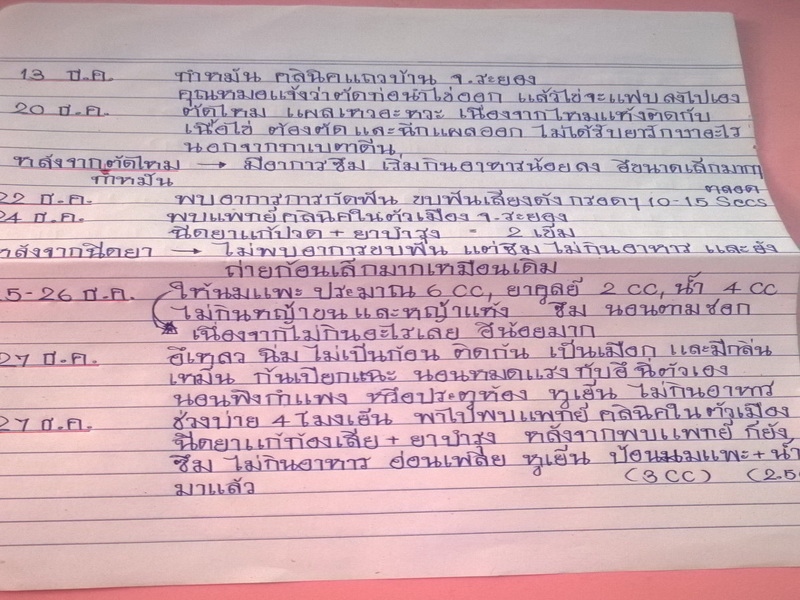 13 ธ.ค. ทำหมัน คลินิคแถวบ้าน จ.ระยอง
คุณหมอแจ้งว่าตัดท่อนำไข่ออก แล้วไข่จะแฟบลงไปเอง
20 ธ.ค. ตัดไหม แผลเหวอะหวะ เนื่องจากไหมแห้งติดกับ
เนื้อไข่ ต้องตัด และฉีกแผลออก ไม่ได้รับยารักษาอะไร
นอกจากทาเบตาดีน
หลังจากตัดไหม → มีอาการซึม เริ่มกินอาหารน้อยลง อึขนาดเล็กมากๆ
ทำหมัน ตลอด
22 ธ.ค. พบอาการการกัดฟัน ขบฟันเสียงดัง กรอดๆ 10-15 Secs
24 ธ.ค. พบแพทย์คลินิคในตัวเมือง จ.ระยอง
ฉีดยาแก้ปวด + ยาบำรุง = 2 เข็ม
หลังจากฉีดยา → ไม่พบอาการขบฟัน แต่ซึม ไม่กินอาหาร และยัง
ถ่ายก้อนเล็กมากเหมือนเดิม
5-26 ธ.ค. ให้นมแพะ ประมาณ 6 CC, ยาคูลย์ 2 CC, น้ำ 4 CC
ไม่กินหญ้าขน และหญ้าแห้ง ซึม นอนตามซอก
เนื่องจากไม่กินอะไรเลย อึน้อยมาก
27 ธ.ค. อึเหลว นิ่ม ไม่เป็นก้อน ติดกัน เป็นเมือก และมีกลิ่น
เหม็น ก้นเปียกแฉะ นอนหมดแรง ทับอึ ฉี่ตัวเอง
นอนพิงกำแพง หรือประตูห้อง หูเย็น ไม่กินอาหาร
27 ธ.ค. ช่วงบ่าย 4 โมงเย็น พาไปพบแพทย์ คลินิคในตัวเมือง
ฉีดยาแก้ท้องเสีย + ยาบำรุง หลังจากพบแพทย์ ก็ยัง
ซึม ไม่กินอาหาร อ่อนเพลีย หูเย็น ป้อนนมแพะ + น้ำ
มาแล้ว (3 CC) (2.5